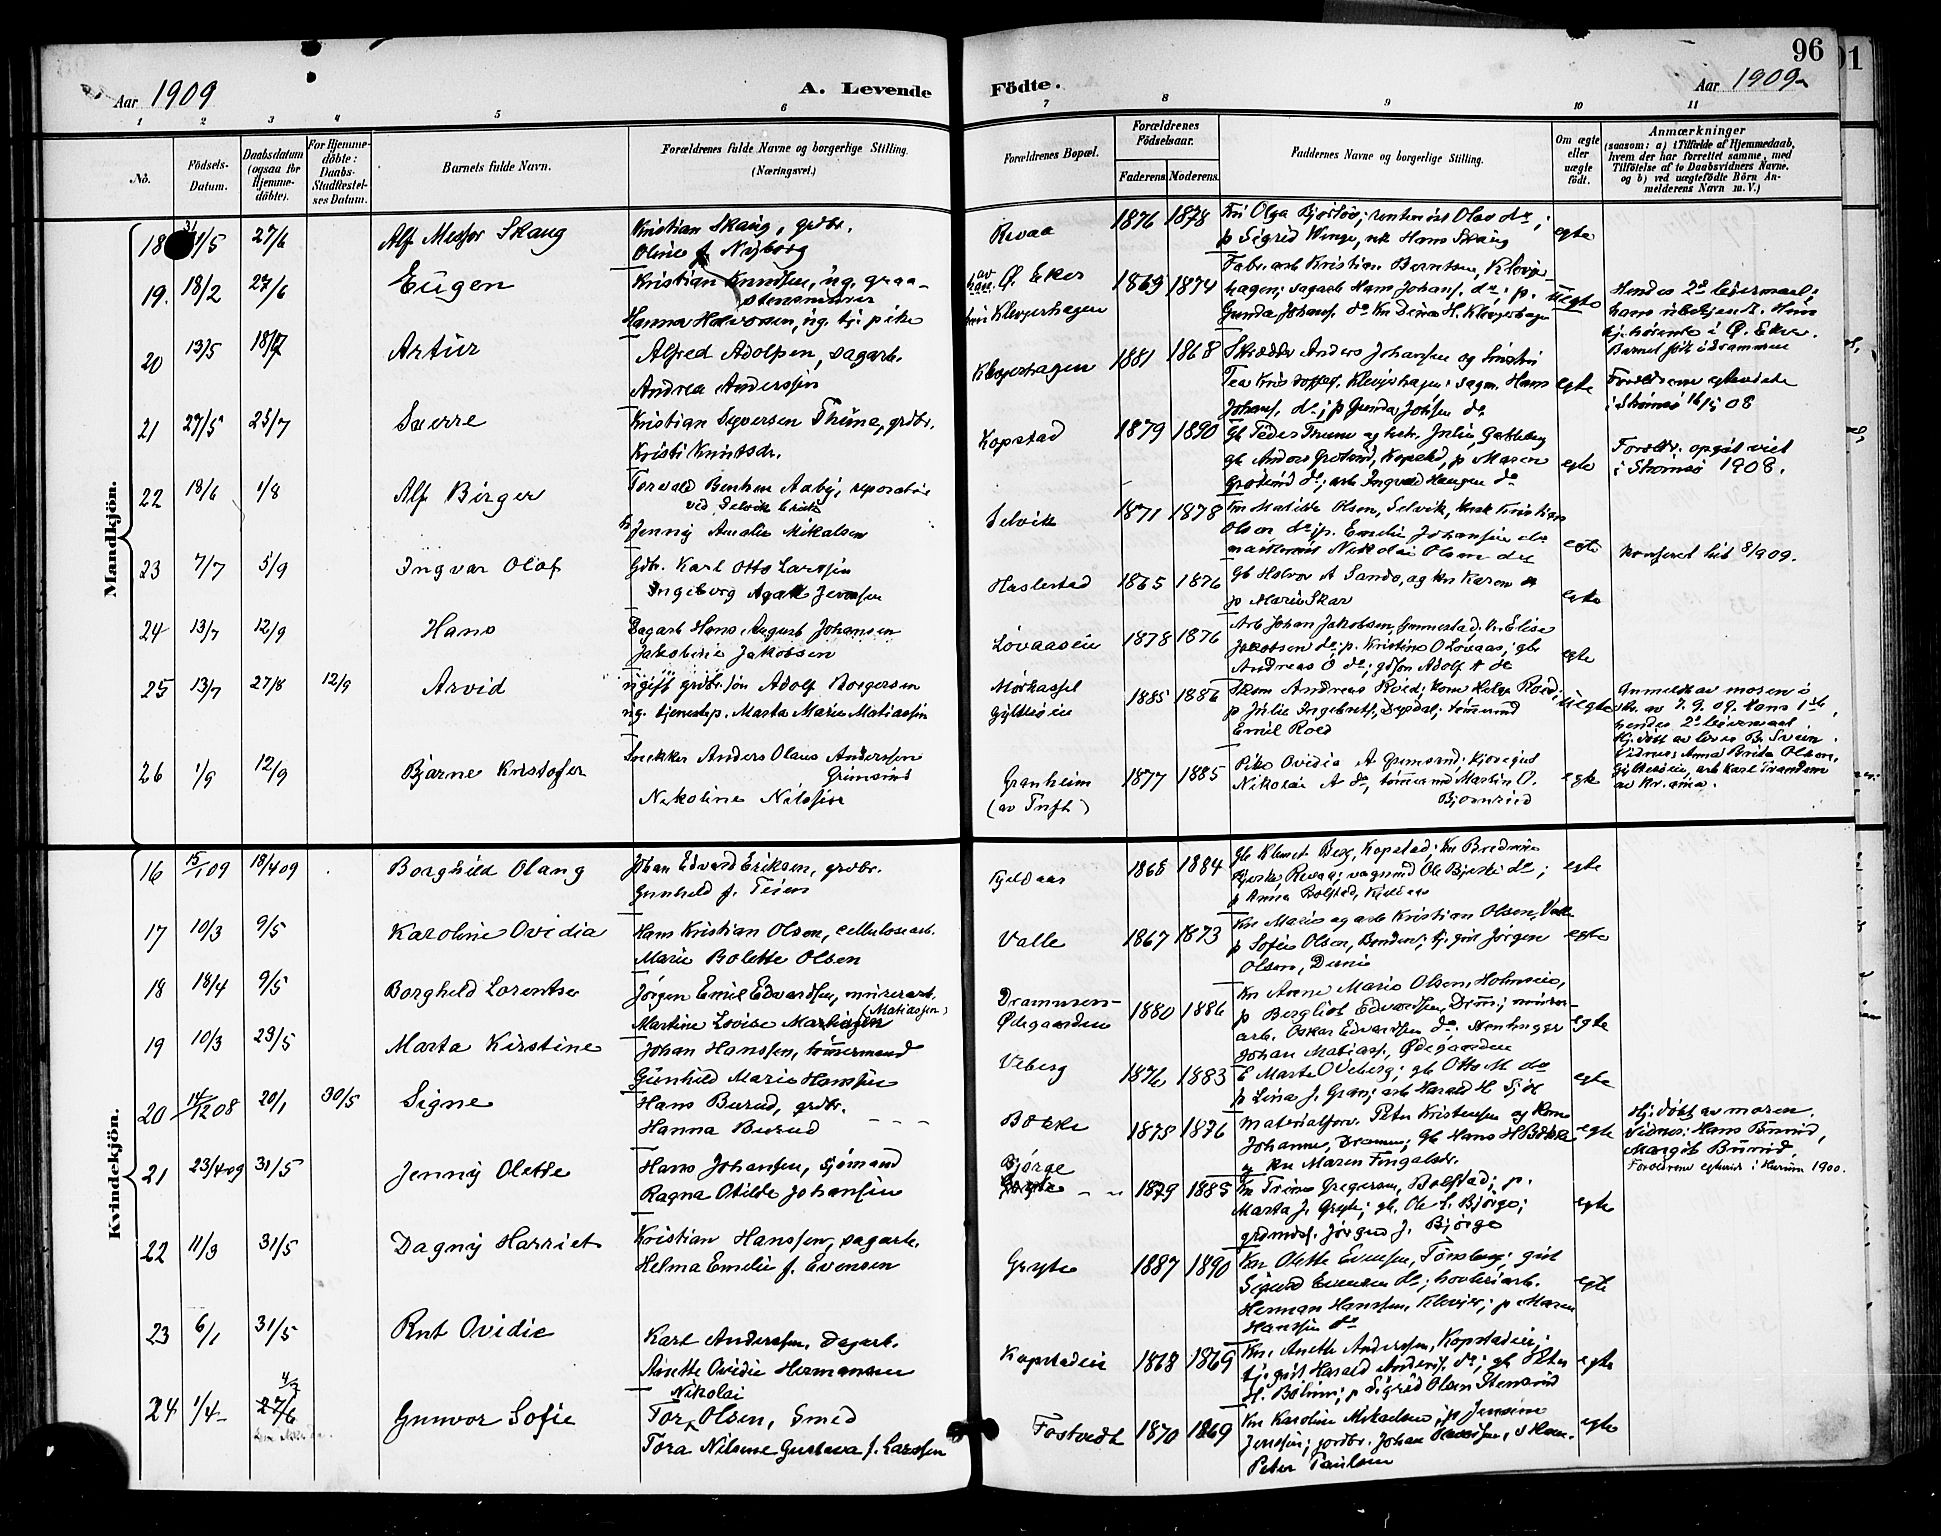 96
91
Aar 1909
A. Levende
Födte.
Aar 1909
1 2 3 4 5 6 7 8 9 10 11
No.
Födsels-
Datum.
Daabsdatum
(ogsaa for
Hjemme-
döbte).
For Hjemme-
döbte:
Daabs-
Stadfæstel-
ses Datum.
Barnets fulde Navn.
Forældrenes fulde Navne og borgerlige Stilling.
(Næringsvei.)
Forældrenes Bopæl.
Forældrenes
Födselsaar.
Faderens. Moderens.
Faddernes Navne og borgerlige Stilling.
Om ægte
eller
uægte
födt.
Anmærkninger
(saasom: a) i Tilfælde af Hjemmedaab,
hvem der har forrettet samme, med
Tilföielse af to Daabsvidners Navne.
og b) ved uægtefödte Börn An-
melderens Navn m. V.)
Mandkjön.
18 31/5 27/6 Alf Messor Skaug
Kristian Skaug, grdbr.
Oline f. Nyborg
Revaa 1876 1878
Kn Olga Bjorlöv; rentenist Olav do;
p Sigrid Winge, uk Hans Skaug
egte
19. 18/2 27/6 Eugen
Kristian Knudsen, ug. graa-
stensmurer
Hanna Halvorsen, ug. tj. pike
av Ø. Eker
hun Klevjerhagen
1869 1874
Fabr. arb Kristian Berntsen, Klevjer
hagen; sagarb Hans Johans. do; p.
Gunda Johans. do Kn Dina H. Klevjerhagen
uegte
Hendes 2det leiermaal;
hans ubekjendt. Him
hj. hørende i Ø. Eker.
Barnet født i Drammen
20 13/5 18/7 Artur
Alfred Adolfsen, sagarb.
Andrea Anderssen
Klevjerhagen 1881 1868
Skrædder Anders Johansen og hustru
Tea Kristoffers. Klevjerhagen; sagm. Hans
Johans. do; p Gunda Johsen do
egte
Forældrene egteviede
i Strømsø 16/5 08
21 27/5 25/7 Sverre
Kristian Syversen Thune, grdbr.
Kristi Knutsdr.
Kopstad 1879 1890
Gb Peder Thune og Julie Gableberg
gb Anders Grøtsund, Kopstad, p Maren
Grøtsund do; arb Ingvald Haugen do
egte
Foreldr. opgit viet
i Strømsø 1908.
22 18/6 1/8 Alf Birger
Torvald Aaby, reparatør
ved Selvik bruk
Jenny Amalie Mikalsen
Selvik 1871 1878
Kn Matilde Olsen, Selvik, Kristian
Olsen do; p. Emilie Johansen do
maskinist Nikolai Olsen do
egte
Konferert hit 8/9 09.
23 7/7 5/9 Ingvar Olaf
Gdbr. Karl Otto Larssen
Ingeborg Agate Jenssen
Haslestad 1865 1876
Gb Halvor A Sando, og kn Karen do
p Marie Skar
egte
24 13/7 12/9 Hans
Sagarb Hans August Johansen
Jakobine Jakobsen
Løvaaseie 1878 1876
Arb Johan Jakobsen, Gunnestad; kn Elise
Jakobsen do; p. Kristine O Løvaas; gb
Andreas O do; gdsøn Adolf A do
egte
25 13/7 27/8 12/9 Arvid
ugift grdbr.søn Adolf Borgersen
ug. tjenestp. Marta Marie Matiassen
Mørkassel
Gyltesøeie
1885 1886
Skom Andreas Roed; kone Helga Roed;
p Julie Ingebrets. Dypdal; tømmermd
Emil Roed
uegte
Anmeldt av moren i
skr. av 7. 9. 09. Hans 1ste,
hendes 2det leiermaal.
Hj. døbt av lærer Br. Svein.
Vidner: Anna Brita Olsen,
Gyltesøeie, arb Karl Tranden
av Kr. ania.
26 1/9 12/9 Bjarne Kristofer
Snekker Anders Olaus Anderssen
Grimsrud
Nikoline Nilssen
Granheim
(av Tuft)
1877 1885
Pike Ovidia A Grimsrud; kjøregut
Nikolai A do, tømmermd Martin O.
Bjørnsrud
egte
Kvindekjön.
16 15/1 09 18/4 09 Borghild Olaug
Johan Edvard Eriksen, grdbr.
Gunhild f. Teien
Kjeldaas 1868 1884
Gb Klemet Berg, Kopstad; kn Bredine
Bjerke Revaa; vognmd Ole Bjerke do;
p Anna Bolstad, Kjeldaas
egte
17 10/3 9/5 Karoline Ovidia
Hans Kristian Olsen, cellulosearb.
Marie Bolette Olsen
Valle 1867 1873
Kn Marie og arb Kristian Olsen, Valle
p Sofie Olsen, Bonden; tj. gut Jørgen
Olsen, Dunie
egte
18 18/4 9/5 Borghild Lorentse
Jørgen Emil Edvardsen, murerarb.
Martine Lovise Mathisen (Matiassen)
Drammens-
Ødegaarden
1880 1886
Kn Anne Marie Olsen, Holmseie,
p Bergliot Edvardsen, Drm; murer-
arb. Oskar Edvardsen do. Stenhugger
Johan Matiass. Ødegaarden
egte
19 10/3 23/5 Marta Kirstine
Johan Hanssen, tømmermand
Gunhild Marie Hanssen
Veberg 1876 1883
E Marte O Veberg; gb Otto M do
p Lina J. Gran; arb Harald H Sjøl
egte
20 14/12 08 20/1 30/5 Signe
Hans Burud, grdbr.
Hanna Burud
Bokke 1875 1876
Materialforv. Peter Kristensen og kone
Johanne, Drammen; gb Hans H Bokke
og kn Maren Fingalsdr.
egte
Hj. døbt av moren.
Vidner: Hans Burud,
Margit Burud.
Foreldrene egteviede i Hurum 1900.
21 23/4 09 31/5 Jenny Olette
Hans Johansen, sjømand
Ragna Otilde Johansen
Bjørge
1879 1885
Kn Trine Gregersen, Bolstad; p.
Marta J. Gryte; gb. Ole L. Bjørge;
grdmds. Jørgen J. Bjørge
egte
22 11/3 31/5 Dagny Harriet
Kristian Hanssen, sagarb.
Helma Emelie f. Evensen
Gryte 1887 1890
Kn Olette Evensen, Tønsberg; gut
Sigurd Evensen do; høvleriarb.
Herman Hanssen, Klevjer; p Maren
Hanssen do
egte
23 6/1 31/5 Rut Ovidie
Karl Anderssen, Dagarb.
Anette Ovidie Hermansen
Kopstadeie 1868 1869
Kn. Anette Anderssen, Kopstadeie;
tj. gut Harald Anders. do; gb Peter
H. Bolum; p Sigrid Olsen Stensrud
egte
24 1/4 27/6 4/7 Gunvor Sofie
Tor Nikolai Olsen, Smed
Tora Nilsine Gustava f. Larssen
Fostvedt 1870 1869
Kn Karoline Mikaelsen, p Jensine
Jenssen; jordbr. Johan
Peter Paulsen
egte